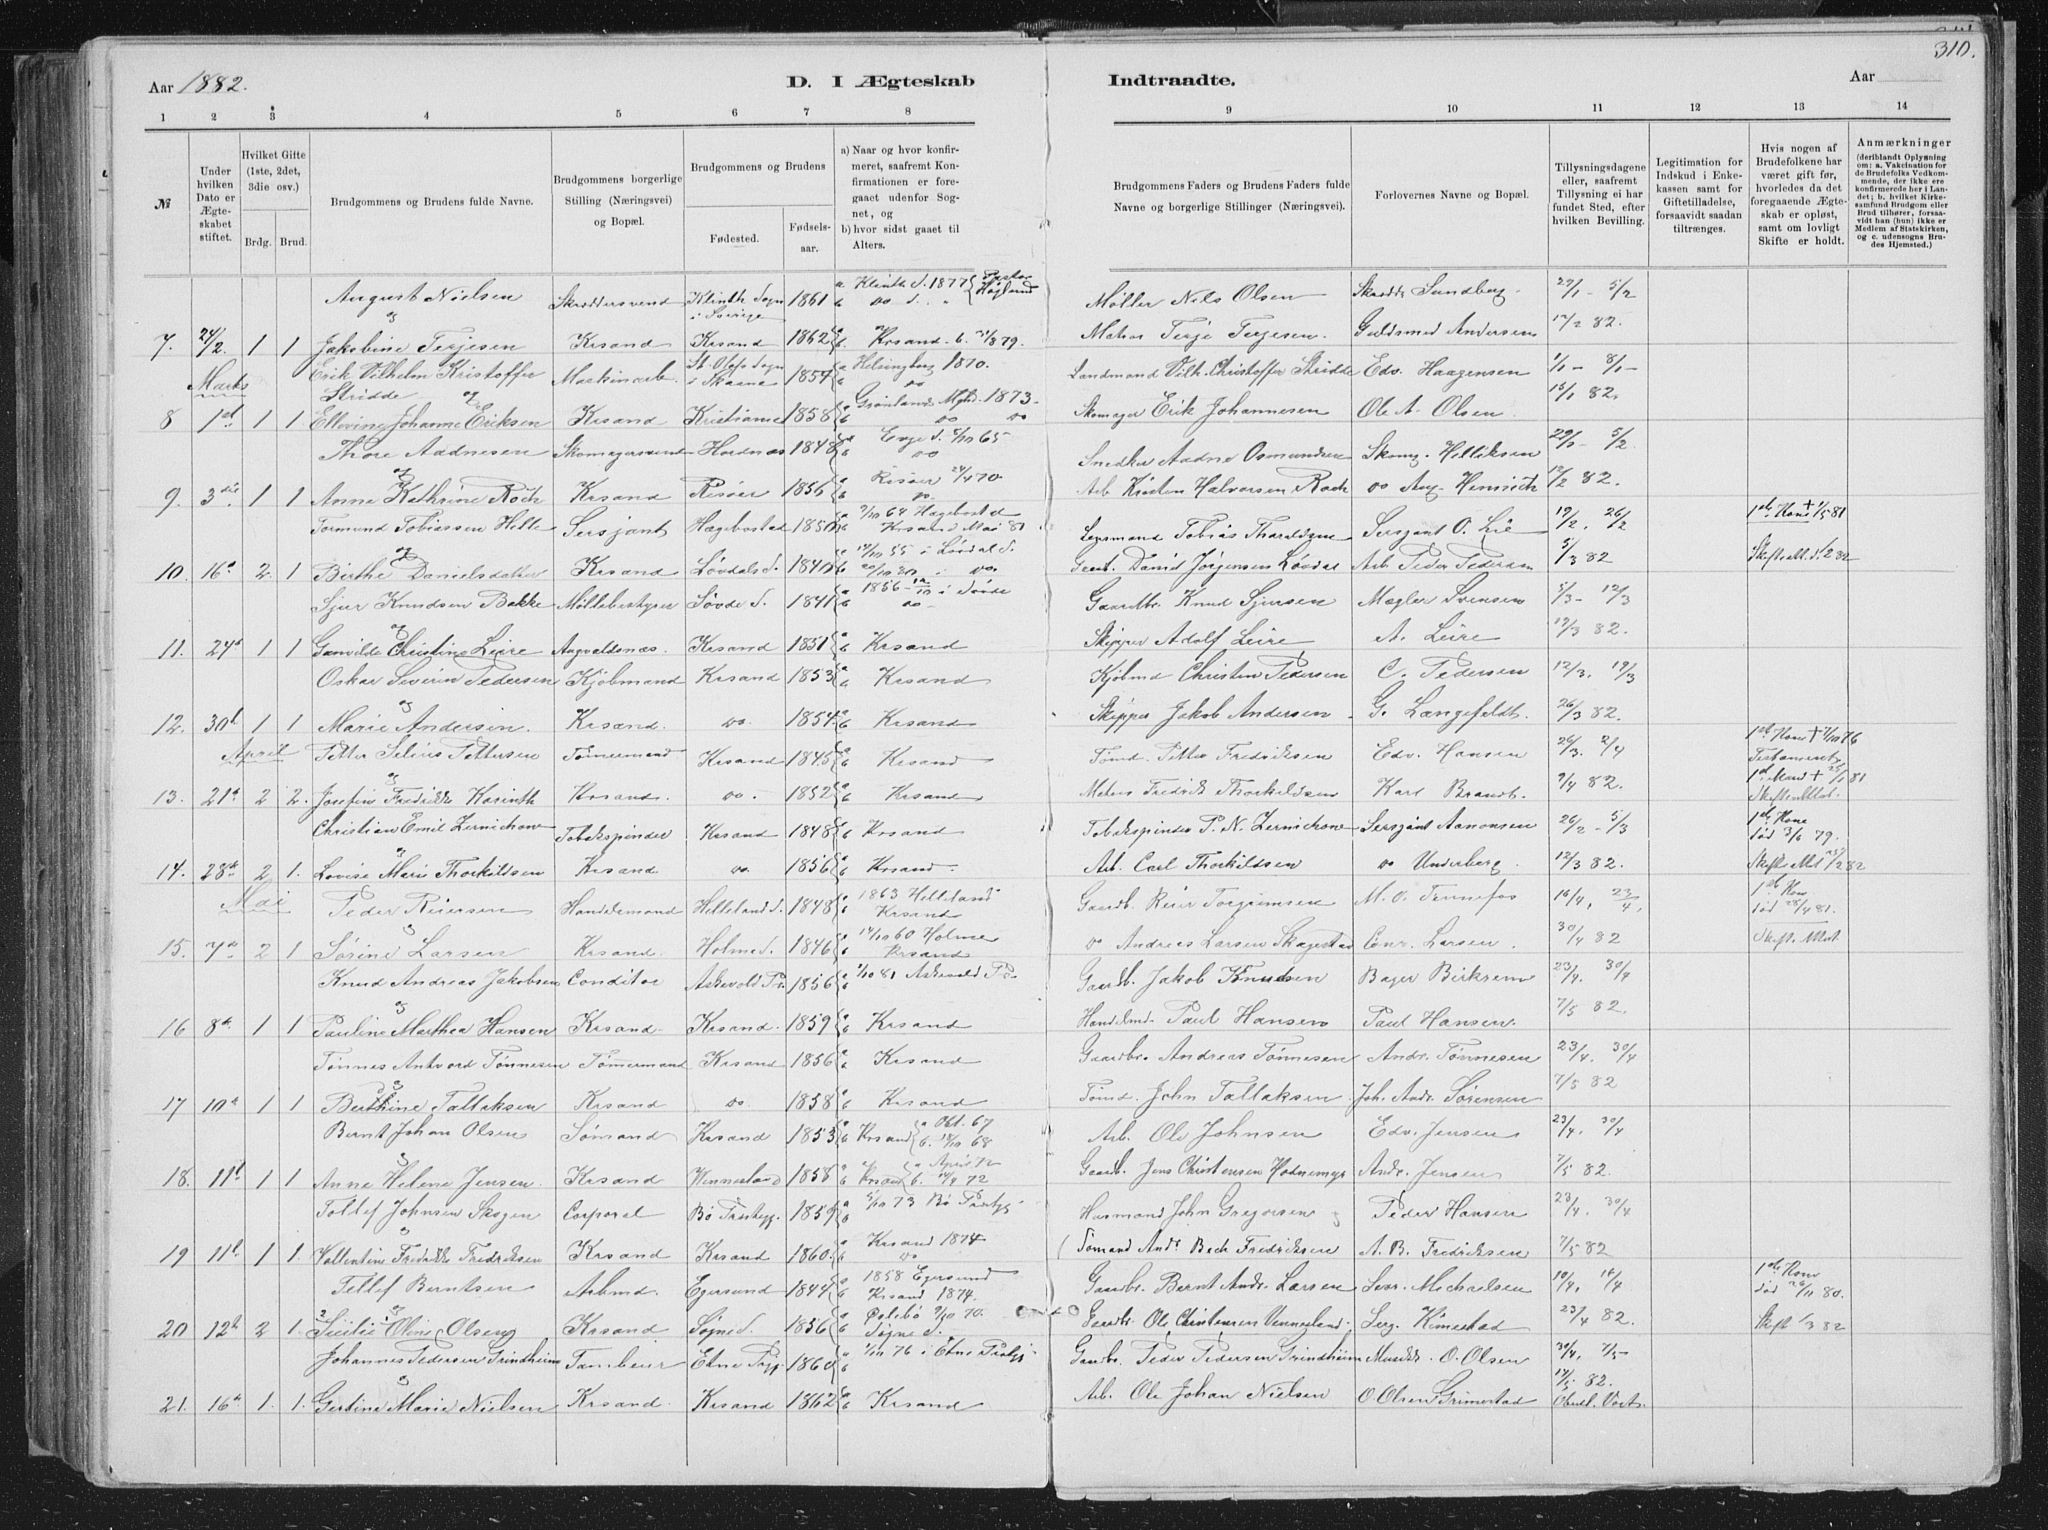 310.
Aar 1882.
D. I Ægteskab Indtraadte.
Aar
1 2 3 4 5 6 7 8 9 10 11 12 13 14
№
Under hvilken Dato er Ægteskabet stiftet.
Hvilket Gifte (1ste, 2det, 3die osv.)
Brdg. Brud.
Brudgommens og Brudens fulde Navne.
Brudgommens borgerlige Stilling (Næringsvei) og Bopæl.
Brudgommens og Brudens
Fødested. Fødselsaar.
a) Naar og hvor konfirmeret, saafremt Konfirmationen er foregaaet udenfor Sognet, og
b) hvor sidst gaaet til Alters.
Brudgommens Faders og Brudens Faders fulde Navne og borgerlige Stillinger (Næringsvei).
Forlovernes Navne og Bopæl.
Tillysningsdagene eller, saafremt Tillysning ei har fundet Sted, efter hvilken Bevilling.
Legitimation for Indskud i Enkekassen samt for Giftetilladelse, forsaavidt saadan tiltrænges.
Hvis nogen af Brudefolkene har været gift før, hvorledes da det foregaaende Ægteskab er opløst, samt om lovligt Skifte er holdt.
Anmærkninger
(deriblandt Oplysning om: a. Vakcination for de Brudefolks Vedkommende, der ikke ere konfirmerede her i Landet; b. hvilket Kirkesamfund Brudgom eller Brud tilhører, forsaavidt han (hun) ikke er Medlem af Statskirken, og c. udensogns Brudes Hjemsted.)
August Nielsen Skræddersvend Klinthe Sogn i Sverige 1861 a Klinthe S. 1877 Møller Nils Olsen Skrædder Sundberg 29/1 - 5/2
7. 24/2. 1 1 Jakobine Terjesen Krsand Krsand 1862 Krsand Matros Terje Terjesen Guldsmed Andersen 12/2 82.
Marts Erik Vilhelm Kristoffer Stridde Maskinarb. St. Olofs Sogn i Skaane 1854 Helsingborg 1870. Landmand Vilh. Christoffer Stridde Edv. Haagensen 1/1 - 8/1 -
8 1st 1 1 Ellevine Johanne Eriksen Krsand Kristiania 1858 Grønland Mghd. 1873. Skomager Erik Johannesen Ole A. Olsen 15/1 82.
Thore Aadnesen Skomagersvend Hordnæs 1848 Evje S. 65 Snedker Aadne Osmundsen Skomg. Hilliksen 29/1 - 5/2
9. 3die 1 1 Anne Kathrine Roch Krsand Risøer 1856 Risøer 24/4 70. Arb. Kristen Halvorsen Roch do Aug. Henrich 12/2 82.
Tormund Tobiassen Helle Sersjant Hægebostad 1850 64 Hægebostad Krsand Mai 81 Lensmand Tobias Tharaldsen Sersjant O. Lie 19/2. 26/2 1ste Kone + 1/5 81
10. 16de 2. 1 Birthe Danielsdatter Krsand Løvdals S. 1840 55 i Løvdal S. Gaardb. Daniel Jørgensen Løvdal Arb. Peder Pedersen 5/3 82
Sjur Knudsen Bakke Møllebestyrer Søvde S. 1841 1856 i Søvde Gaardbr. Knud Sjursen Mægler Svensen 5/3 - 12/3
11. 24de 1 1 Gunvilde Christine Leire Augvaldsnæs. Krsand 1851 Krsand Skipper Adolf Leire A. Leire 19/3 82.
Oskar Severin Pedersen Kjøbmand Krsand 1853 Krsand Kjøbmd Christen Pedersen C. Pedersen 12/3. 19/3
12. 30te 1 1 Marie Andersen. Krsand. do. 1854 Krsand Skipper Jakob Andersen G. Langefeldt. 26/3 82.
April Petter Selius Pettersen Tømmermand Krsand 1845 Krsand Tømd. Petter Fredriksen Edv. Hansen 26/3. 2/4 1ste Kone + 76
13. 21de 2 2. Josefine Fredrikke Karinth Krsand. do. 1852 Krsand Matros Fredrik Thorkildsen Karl Brandt. 9/4 82. 1ste Mand + 81
Christian Emil Zernichow Tobakspinder Krsand 1848 Krsand Tobakspinder P. N. Zernichow Sersjant Aanonsen 26/2 - 5/3 1ste Kone død 3/6 79.
14. 28de 2 1. Lovise Marie Thorkildsen Krsand do. 1856 Krsand. Arb. Carl Thorkildsen do Underberg. 12/3 82.
Mai Peder Reiersen Handelsmand Helleland S. 1848 1863 Helleland Krsand Gaardb. Reier Torgrimsen M. O. Trunefos 16/4, 23/4, 1ste Kone død 28/4 81.
15. 7de 2 1 Sørine Larsen Krsand. Holme S. 1846 60 Holme Krsand do Andreas Larsen Skagestad Conr. Larsen. 30/4 82
Knud Andreas Jakobsen Conditor Askevold Pr. 1856 81 Askevold Pr. Gaardb. Jakob Knudsen Bager Birkrem 23/4. 30/4
16 8de 1 1 Pauline Marthea Hansen Krsand. Krsand. 1859 Krsand Handelsmd. Paul Hansen Paul Hansen. 7/5 82.
Tønnes Antvord Tønnesen Tømmermand Krsand 1856 Krsand Gaardbr. Andreas Tønnesen Andr. Tønnesen 23/4. 30/4
17 10de 1 1 Berthine Tallaksen Krsand do. 1858 Krsand Tømd. John Tallaksen Joh. Andr. Sørensen 7/5 82
Bernt Johan Olsen Sømand Krsand 1853 Krsand a Okt. 67 b. 68 Arb. Ole Johnsen Edv. Jensen 23/4. 30/4
18. 11te 1 1 Anne Helene Jensen Krsand Vennesland 1858 Krsand a April 72 b. 72 Gaardb. Jens Christensen Andr. Jensen 7/5 82.
Tollef Johnsen Skogen Corporal Bø Præstegj. 1859 73 Bø Præstgj. Husmand John Gregorsen Peder Hansen 23/4. 30/4
19 11te 1 1. Vallentine Fredrikke Fredriksen Krsand Krsand 1860. Krsand 1874 Tømand Andr. Bech Fredriksen A. B. Fredriksen 7/5 82
Tellef Berntsen Arbmd. Egersund 1847 1858 Egersund Krsand 1874. Gaardbr. Bernt Andr. Larsen Sivr. Michaelsen 10/4, 16/4 1ste Kone død 80.
20 12te 2 1. Oline Olsen Krsand Søgne S. 1856 70. Søgne S. Gaardbr. Ole Christensen Vennesland Serg. Kimestad 23/4 82. Skift 1/3 82
Johannes Pedersen Grindheim Tambour Etne Prgj. 1860 76 i Etne Prstgj. Gaardbr. Peder Pedersen Grindheim Musikk. O. Olsen 30/4, 7/5 -
21. 16de 1. 1. Gertine Marie Nielsen Krsand. Krsand 1862 Krsand Arb. Ole Johan Nielsen O Olsen Grimestad 14/5 82.